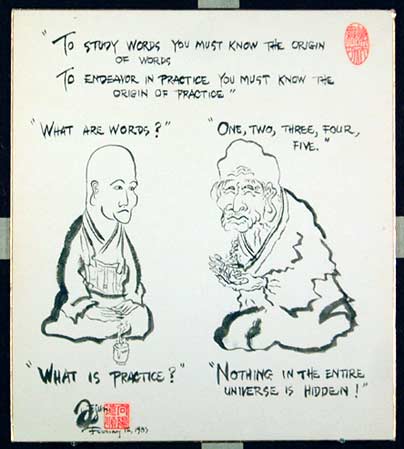 "TO STUDY WORDS YOU MUST KNOW THE ORIGIN
OF WORDS
TO ENDEAVOR IN PRACTICE YOU MUST KNOW THE
ORIGIN OF PRACTICE"
"WHAT ARE WORDS?"
"ONE, TWO, THREE, FOUR,
FIVE."
"WHAT IS PRACTICE?"
"NOTHING IN THE ENTIRE
UNIVERSE IS HIDDEN!"